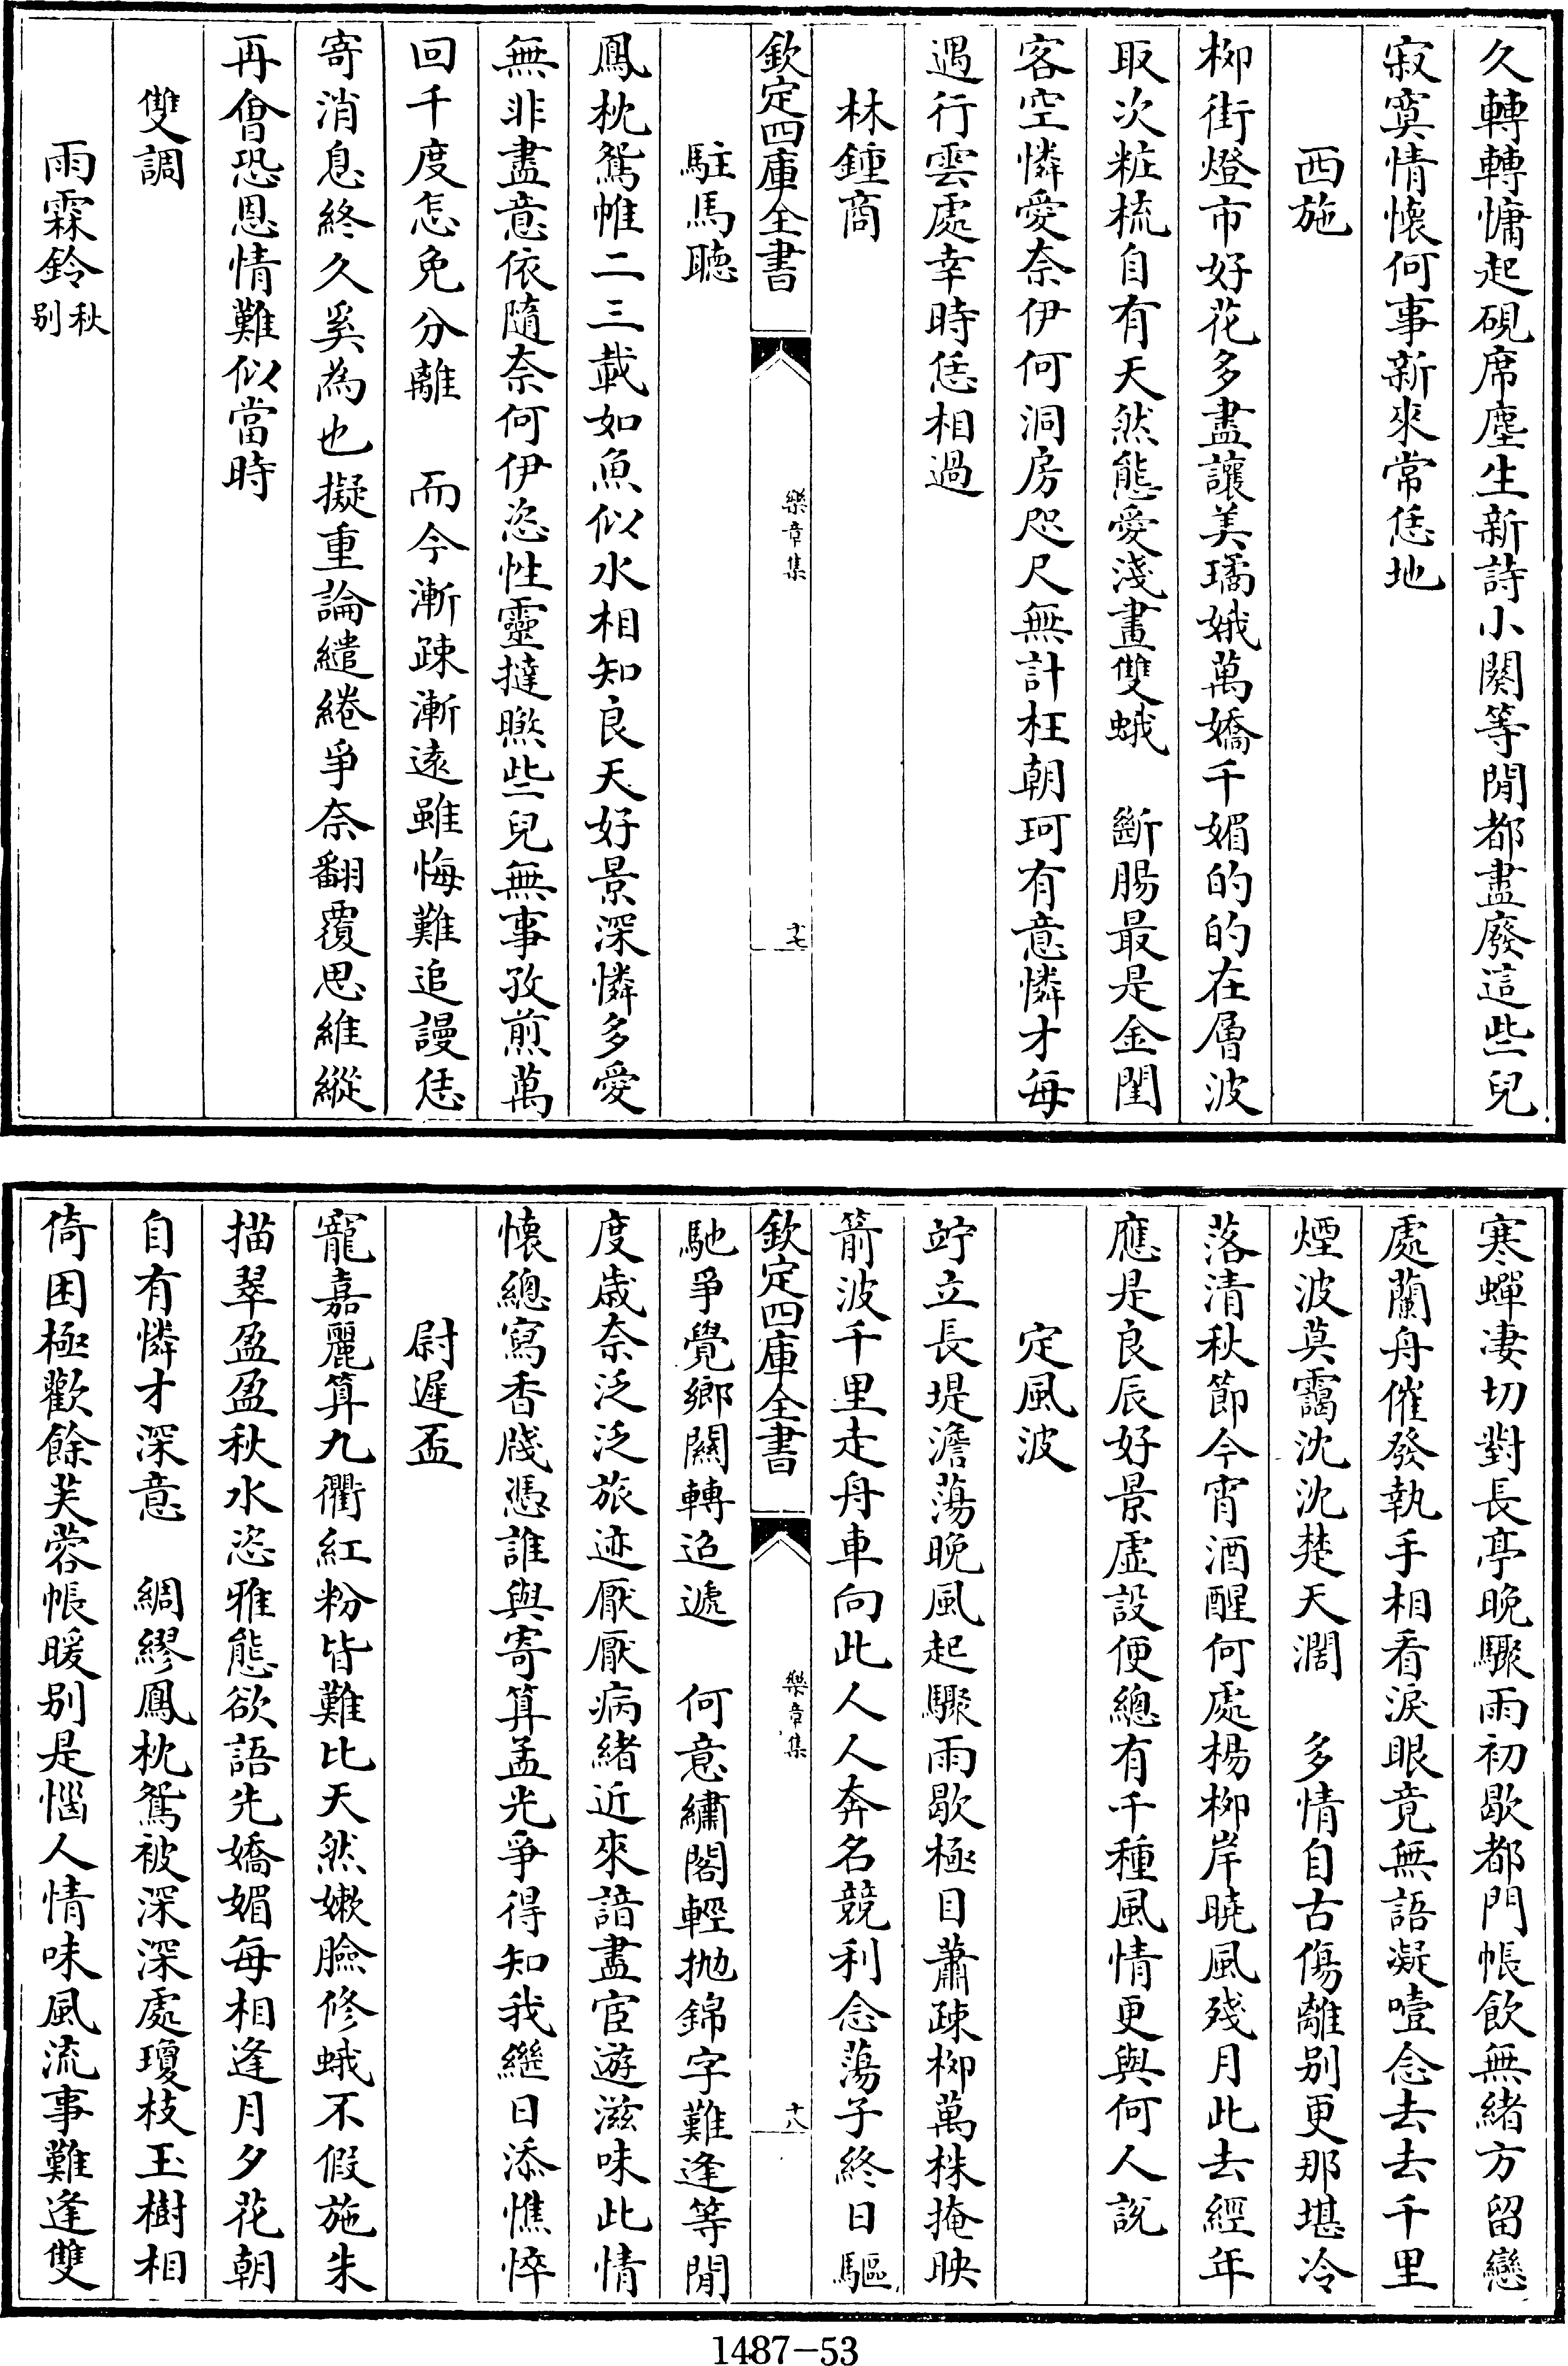 久轉轉慵起硯席塵生新詩小闋等閒都盡廢這些兒
寂寞情懷何事新來常恁地
西施
柳街燈市好花多盡讓美璚娥萬嬌千媚的的在層波
取次粧梳自有天然態愛淺畫雙蛾　斷腸最是金閨
客空憐愛奈伊何洞房咫尺無計枉朝珂有意憐才每
遇行雲處幸時恁相過
林鍾商
欽定四庫全書
樂章集
十七
駐馬聽
鳳枕鴛帷二三載如魚似水相知良天好景深憐多愛
無非盡意依隨奈何伊恣性靈撻㬠些兒無事孜煎萬
回千度怎免分離　而今漸疎漸遠雖悔難追謾恁
寄消息終久奚為也擬重論繾綣爭奈翻覆思維縱
再㑹恐恩情難似當時
雙調
雨霖鈴秋别
寒蟬凄切對長亭晚驟雨初歇都門帳飲無緒方留戀
處蘭舟催發執手相看淚眼竟無語凝噎念去去千里
煙波莫靄沈沈楚天濶　多情自古傷離别更那堪冷
落清秋節今宵酒醒何處楊柳岸曉風殘月此去經年
應是良辰好景虛設便總有千種風情更與何人說
定風波
竚立長堤澹蕩晚風起驟雨歇極目蕭疎柳萬株掩映
箭波千里走舟車向此人人奔名競利念蕩子終日驅
欽定四庫全書
樂章集
十八
馳爭覺鄉關轉迢遞　何意繡閣輕抛錦字難逢等閒
度歲奈泛泛旅迹厭厭病緒近來諳盡宦遊滋味此情
懷總寫香牋憑誰與寄算孟光爭得知我繼日添憔悴
尉遲盃
寵嘉麗算九衢紅粉皆難比天然嫩臉修蛾不假施朱
描翠盈盈秋水恣雅態欲語先嬌媚每相逢月夕花朝
自有憐才深意　綢繆鳳枕鴛被深深處瓊枝玉樹相
倚困極歡餘芙蓉帳暖别是惱人情味風流事難逢雙
1487-53